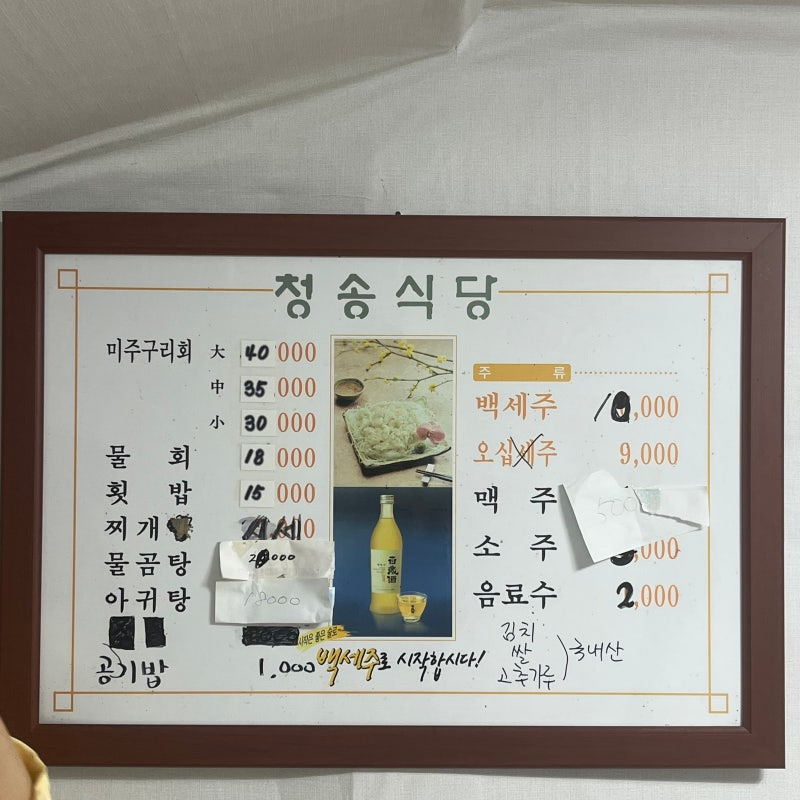 청송식당
미주구리회 大 40,000
中 35,000
小 30,000
물회 18,000
횟밥 15,000
찌개 시세
물곰탕 000
아귀탕 18000
공기밥 1,000
주류
백세주 10,000
오십세주 9,000
맥주 500
소주 ,000
음료수 2,000
百歲酒
시작은 좋은 술로
백세주로 시작합시다!
김치
쌀
고추가루
국내산